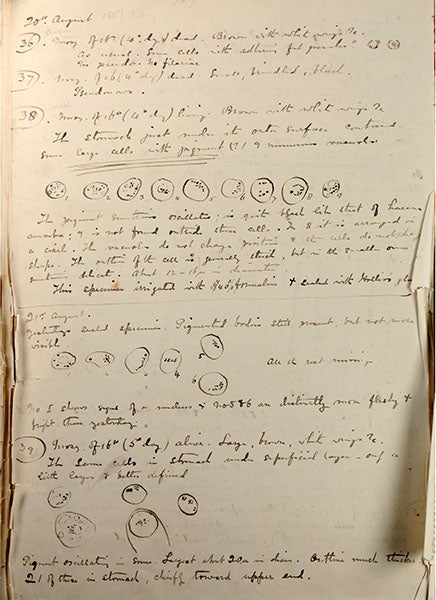 20th August
36. Mosq. of 16th (4th day) dead. Brown with white wings &c.
As usual. Some cells with adhering
No pseudo. No filariae
37. Mosq. of 16 (4th day) dead. Small, brindled, black.
38. Mosq. of 16th (4th day) living. Brown with white wings &c
The stomach just under its outer surface contained
some large cells with pigment & numerous vacuoles
1 2 3 4 5 6 7 8 9
The pigment sometimes oscillates; is quite black like that of
& is not found outside these cells. In 8 it is arranged in
a circle. The vacuoles do not change position & the cells do not change
shape. The outline of the cell is generally thick, but in the smaller ones
sometimes slight. About 12-16µ in diameter.
This specimen irrigated with 4% formalin & sealed with
21st August.
Yesterday's sealed specimen. Pigmented bodies still present, but not more
visible
5
4
6
All the rest missing
No 1 shows signs of a nucleus, & no 5 & 6 are distinctly more fleshy &
bright than yesterday.
39 Mosq. of 16th (5th day) alive. Large, brown, white wings &c.
The same cells in stomach under superficial layer - only a
little larger & better defined
Pigment oscillating in some. Largest about 20µ in diam. Outline much thicker
21 of these in stomach, chiefly toward upper end.